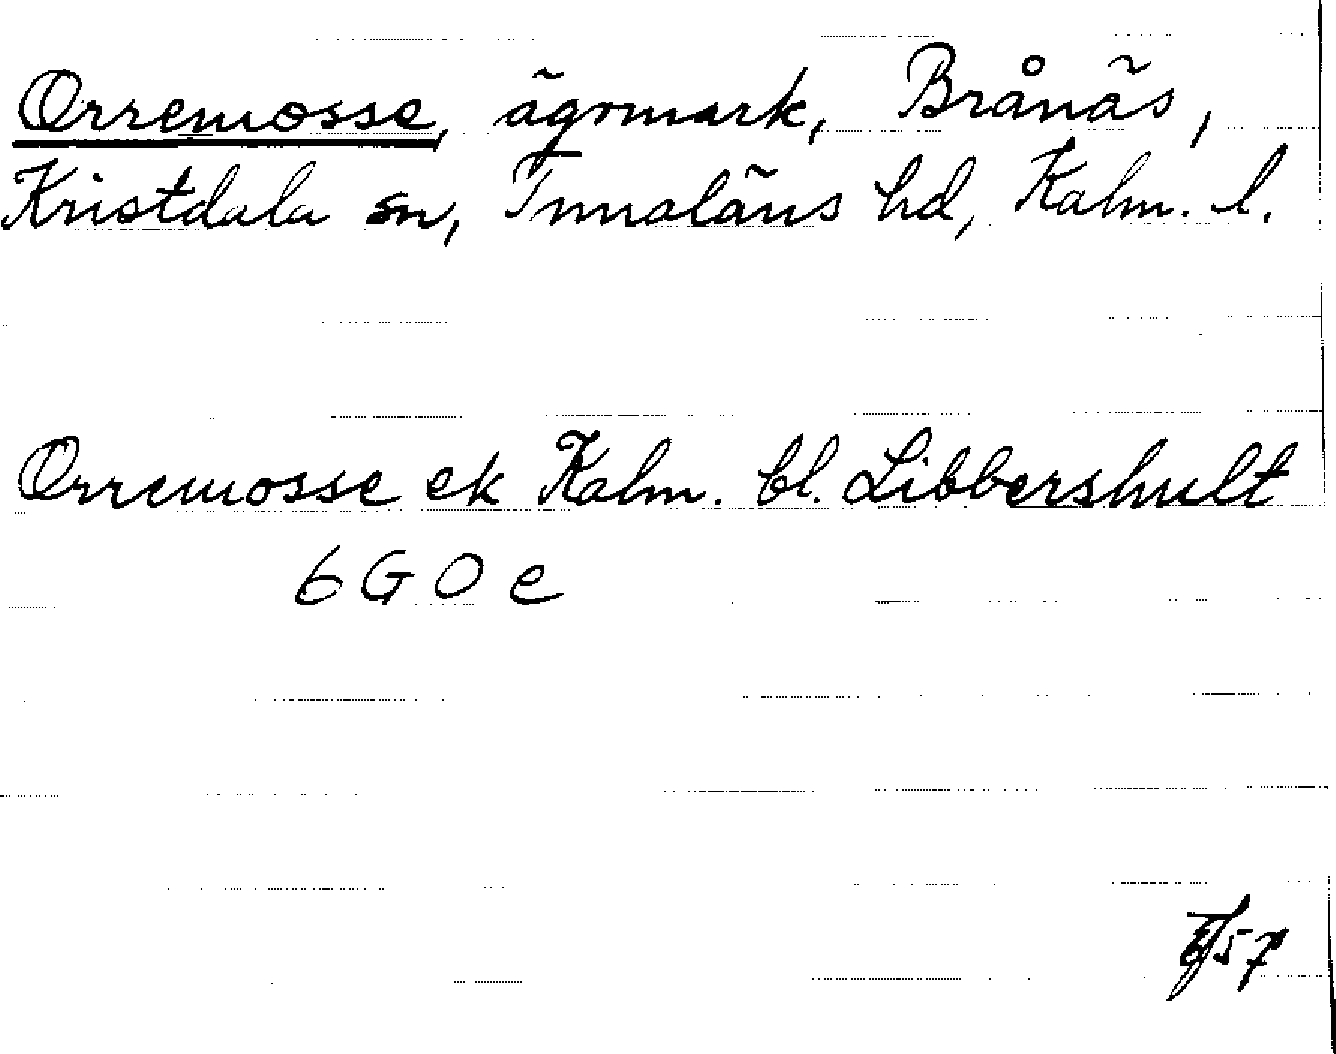 Orremosse, ägomark, Brånäs,
Kristdala sn, Tunaläns hd, Kalm. l.
Orremosse ek Kalm. bl. Libbershult
6 G O e
57